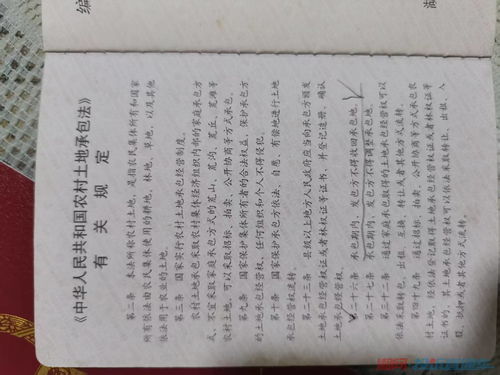 《中华人民共和国农村土地承包法》
有关规定
第二条 本法所称农村土地，是指农民集体所有和国家
所有依法由农民集体使用的耕地、林地、草地，以及其他
依法用于农业的土地。
第三条 国家实行农村土地承包经营制度。
农村土地承包采取农村集体经济组织内部的家庭承包方
式，不宜采取家庭承包方式的荒山、荒沟、荒丘、荒滩等
农村土地，可以采取招标、拍卖、公开协商等方式承包。
第九条 国家保护集体所有者的合法权益，保护承包方
的土地承包经营权，任何组织和个人不得侵犯。
第十条 国家保护承包方依法、自愿、有偿地进行土地
承包经营权流转。
第二十三条 县级以上地方人民政府应当向承包方颁发
土地承包经营权证或者林权证等证书，并登记造册，确认
土地承包经营权。
第二十六条 承包期内，发包方不得收回承包地。
第二十七条 承包期内，发包方不得调整承包地。
第三十二条 通过家庭承包取得的土地承包经营权可以
依法采取转包、出租、互换、转让或者其他方式流转。
第四十九条 通过招标、拍卖、公开协商等方式承包农
村土地，经依法登记取得土地承包经营权证或者林权证等
证书的，其土地承包经营权可以依法采取转让、出租、入
股、抵押或者其他方式流转。
编
湖